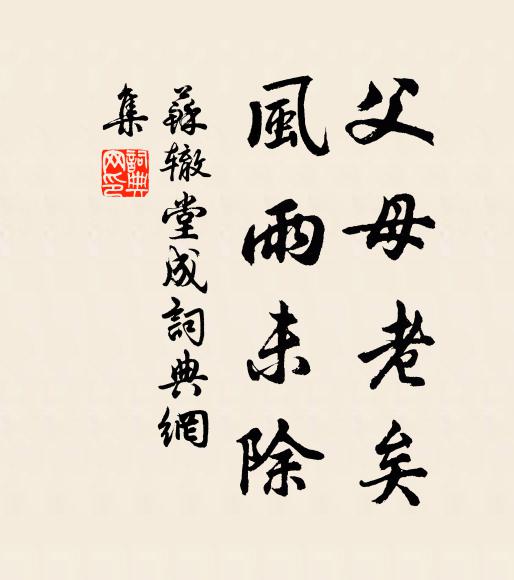 父母老矣
風雨未除
蘇辙堂成詞典網
集
詞典網印